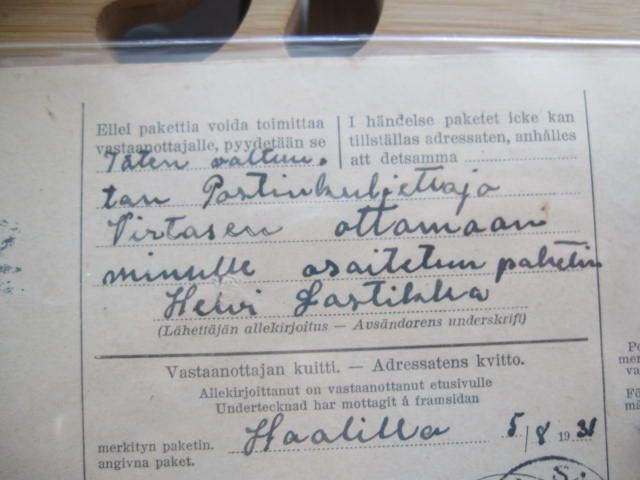 Ellei pakettia voida toimittaa
vastaanottajalle, pyydetään se
I händelse paketet icke kan
tillställas adressaten, anhålles
att detsamma
Täten valtuu-
tan Postinkuljettaja
Virtasen ottamaan
minulle osoitetun paketin
Helvi Lastikka
(Lähettäjän allekirjoitus — Avsändarens underskrift)
Vastaanottajan kuitti. — Adressatens kvitto.
Allekirjoittanut on vastaanottanut etusivulle
Undertecknad har mottagit å framsidan
merkityn paketin.
angivna paket.
5/8 1931